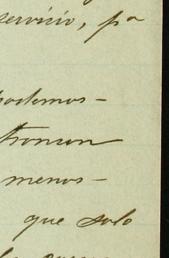 servicio, pa
podemos -
tronun
menos -
que solo